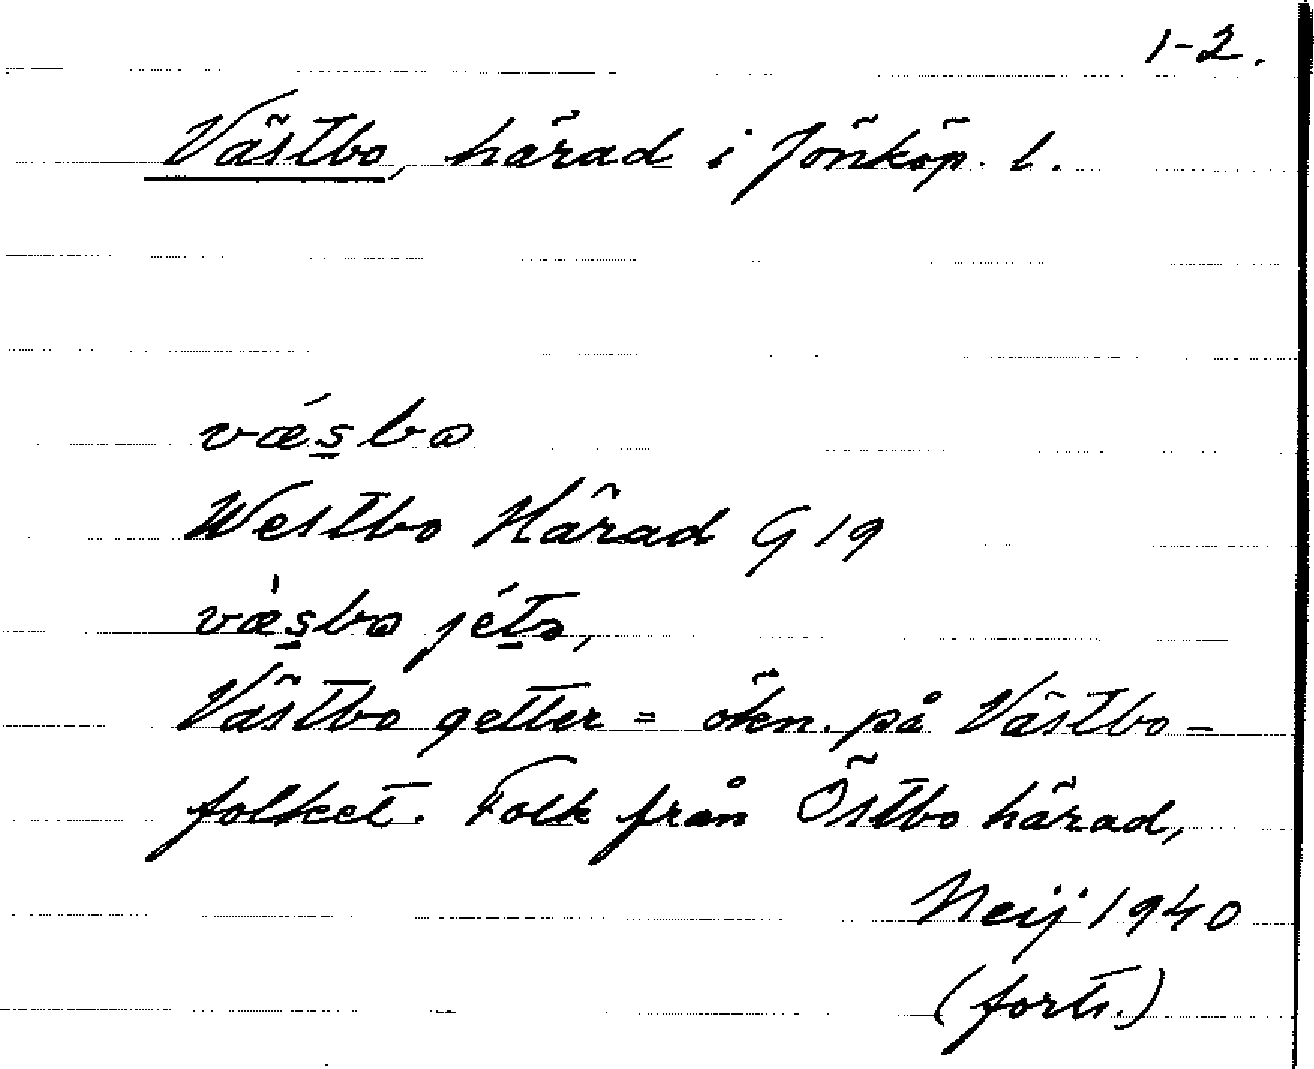 1-2.
Västbo, härad i Jönköp. l.
vǽs̲bo
Westbo Härad G 19
væ̀s̲bo jét̲ɘ,
Västbo getter = ökn. på Västbo-
folket. Folk från Östbo härad,
Neij 1940
(forts.)